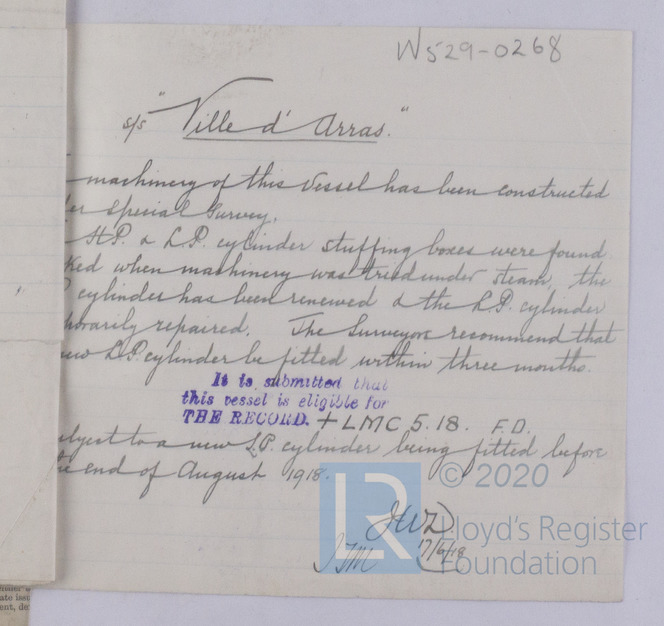 W529-0268
s/s "Ville d'Arras."
machinery of this Vessel has been constructed
er Special Survey.
H.P. & L.P. cylinder stuffing boxes were found
ked when machinery was tried under steam, the
P cylinder has been renewed & the L.P. cylinder
porarily repaired. The Surveyors recommend that
new L.P. cylinder be fitted within three months.
It is submitted that
this vessel is eligible for
THE RECORD. + LMC 5.18. F.D.
ubject to a new L.P. cylinder being fitted before
the end of August 1918.
© 2020
LR
Lloyd's Register
17/6/18
Foundation
ate isse
ent, de